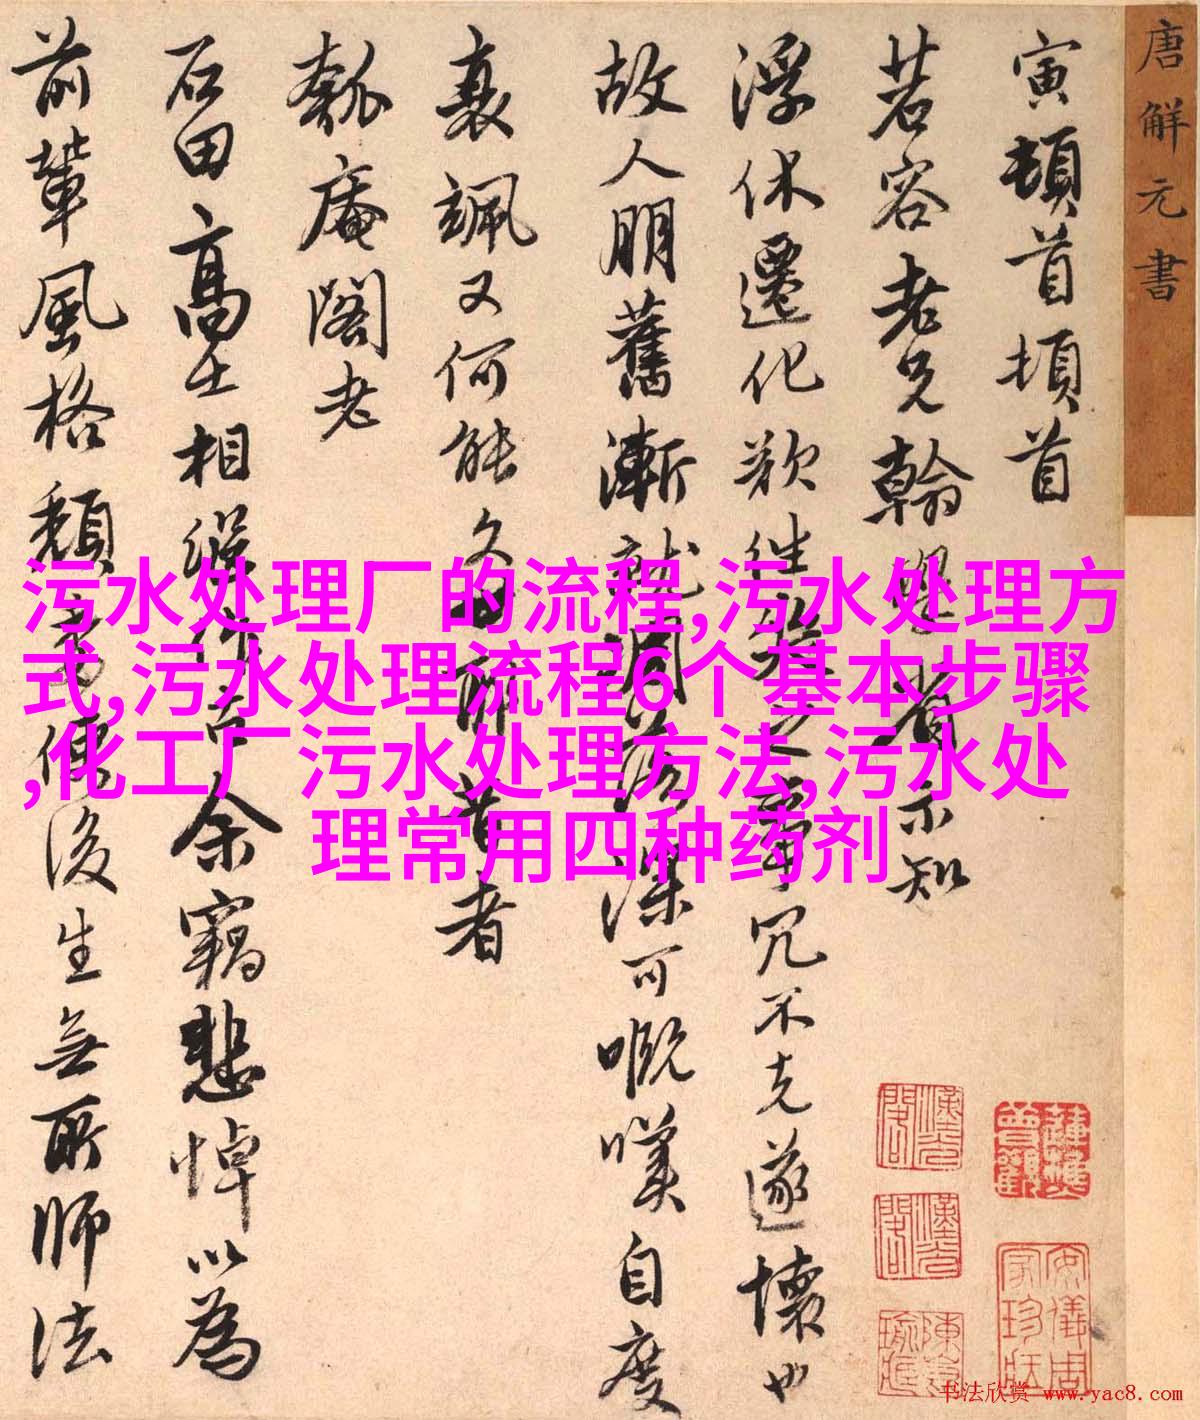 唐解元書
寅頓首頓首
茗容老兄翰
示知
浮休遷化欲往
冗不克遂懷也
故人朋舊漸就凋落深可嘅嘆自度
衰颯又何能久
昔者
瓠庵閣老
石田高士相繼作古余竊悲悼以為
前輩風格頹
後生無所師法
污水处理厂的流程,污水处理方
式,污水处理流程6个基本步骤
,化工厂污水处理方法,污水处
理常用四种药剂
书法欣赏 www.yac8.com